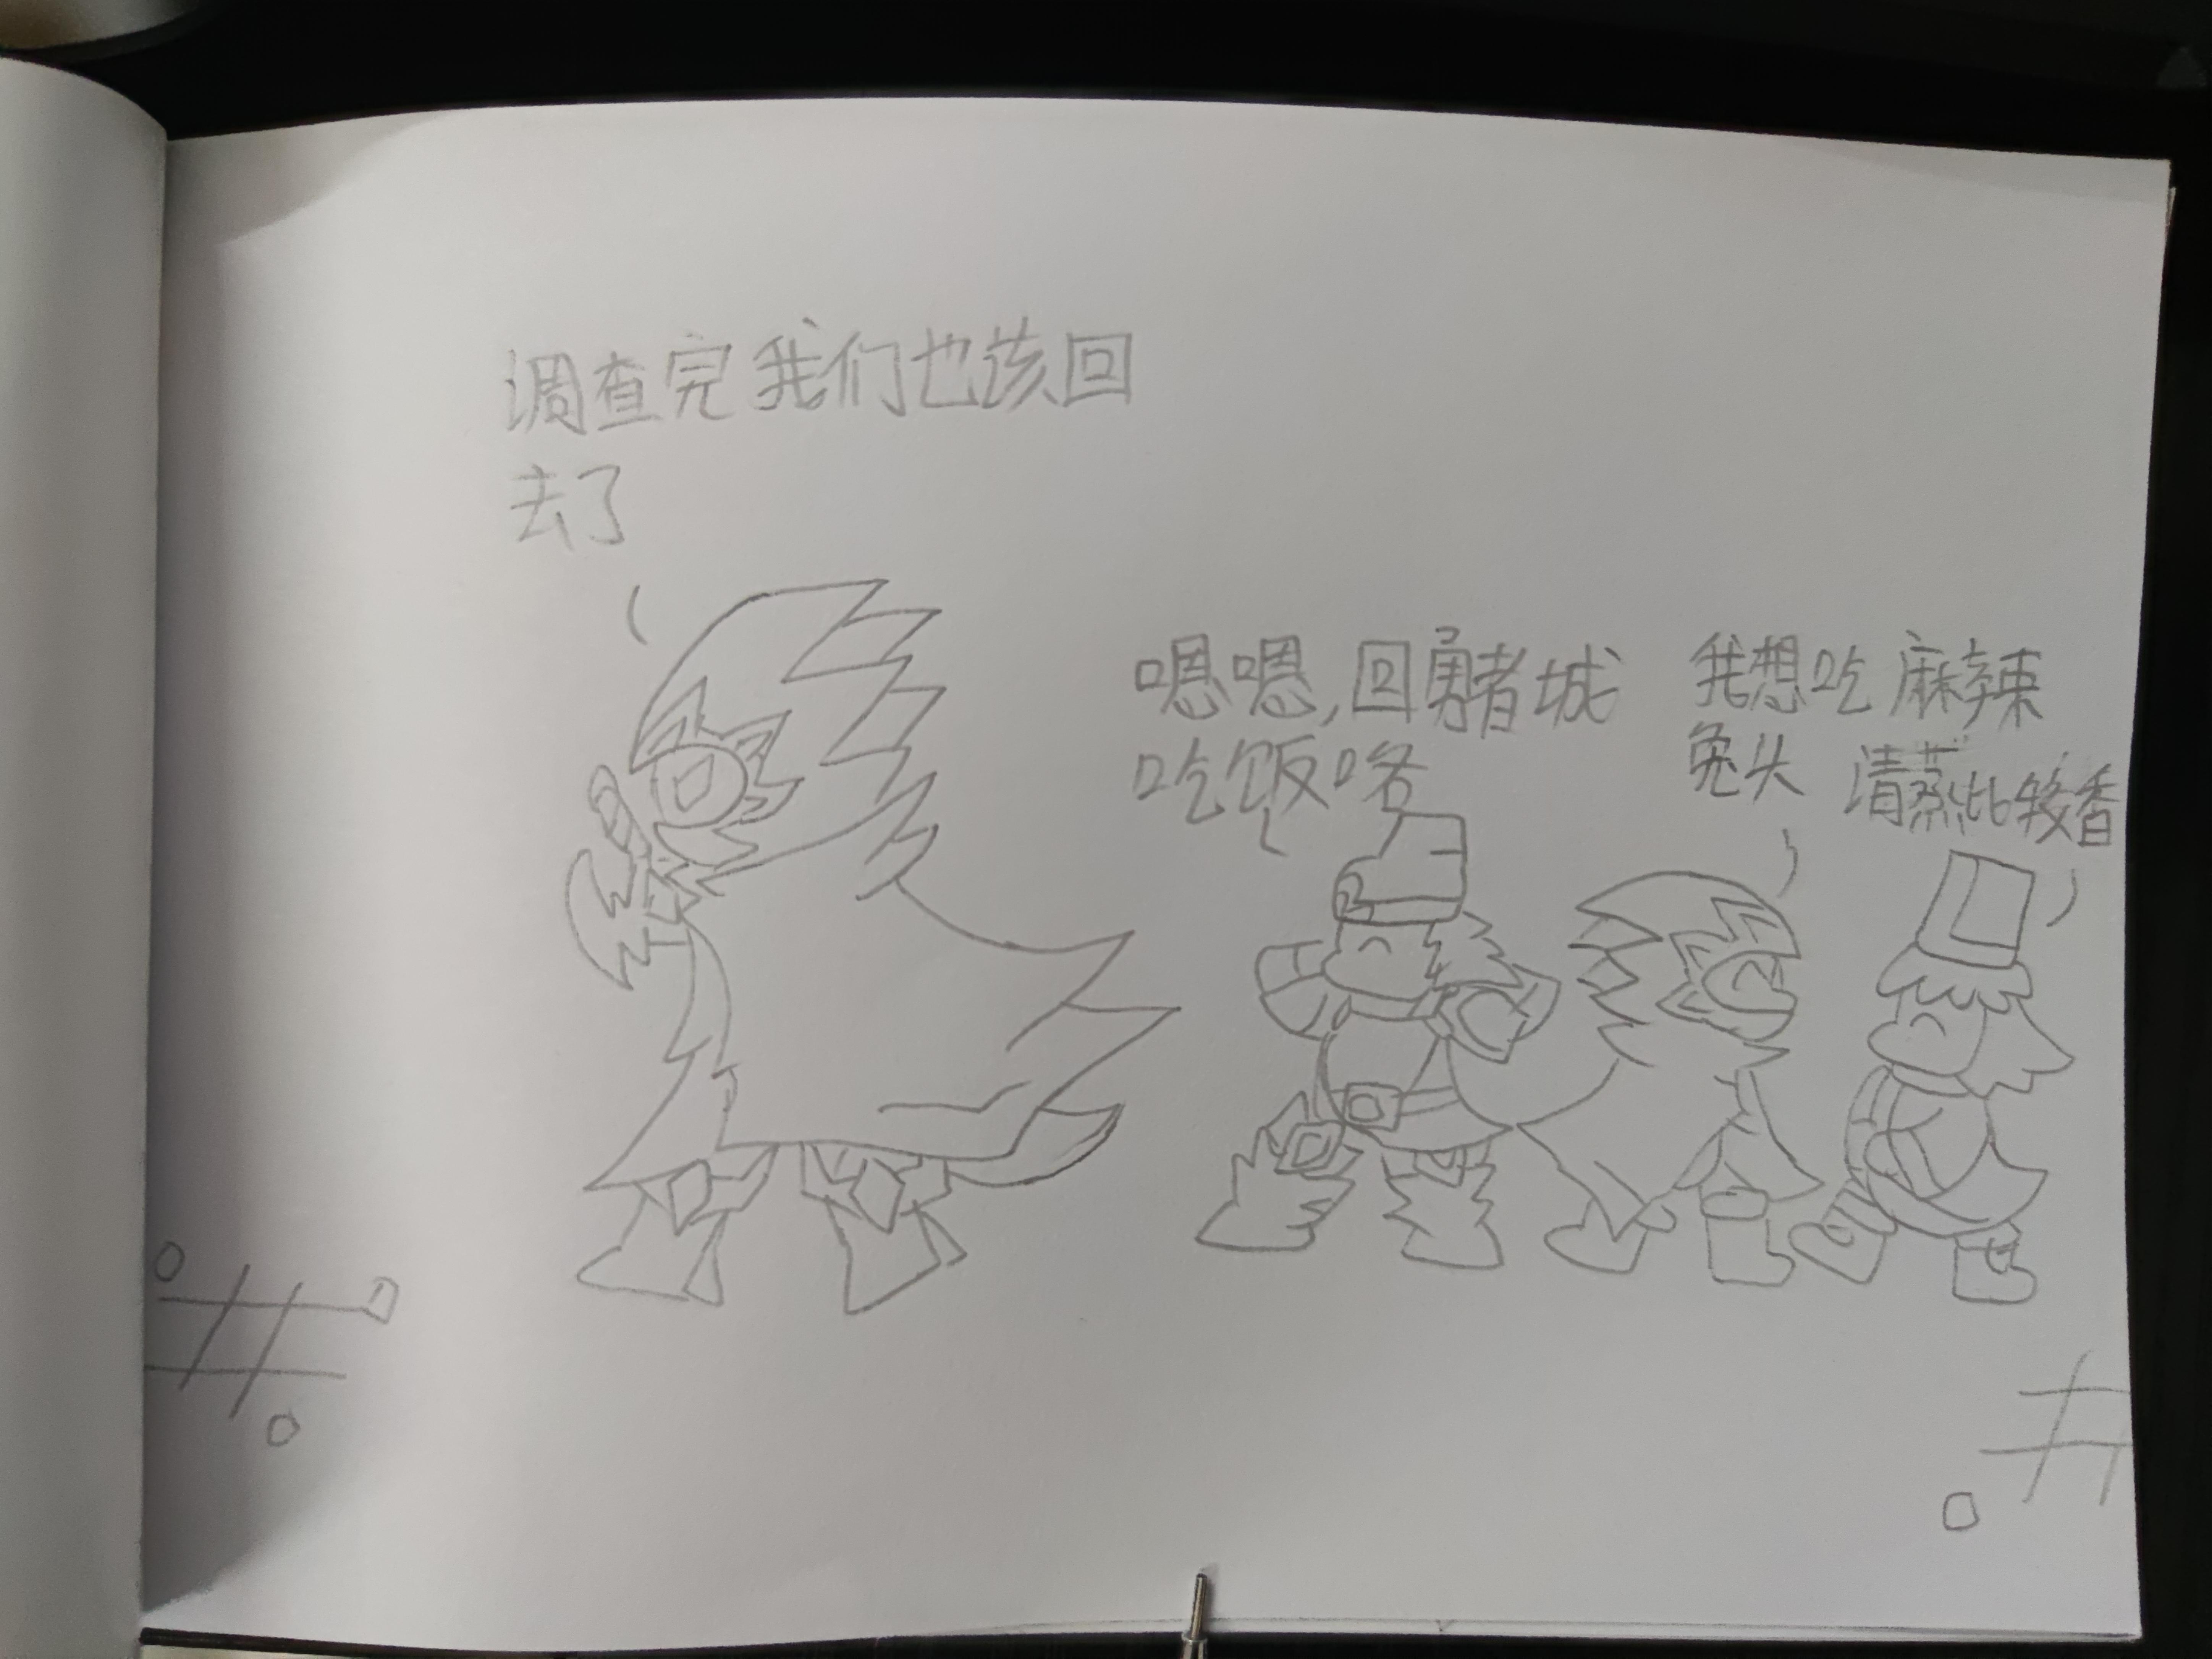 调查完我们也该回
去了
嗯嗯,回勇者城
吃饭咯
我想吃麻辣
兔头
清蒸比较香